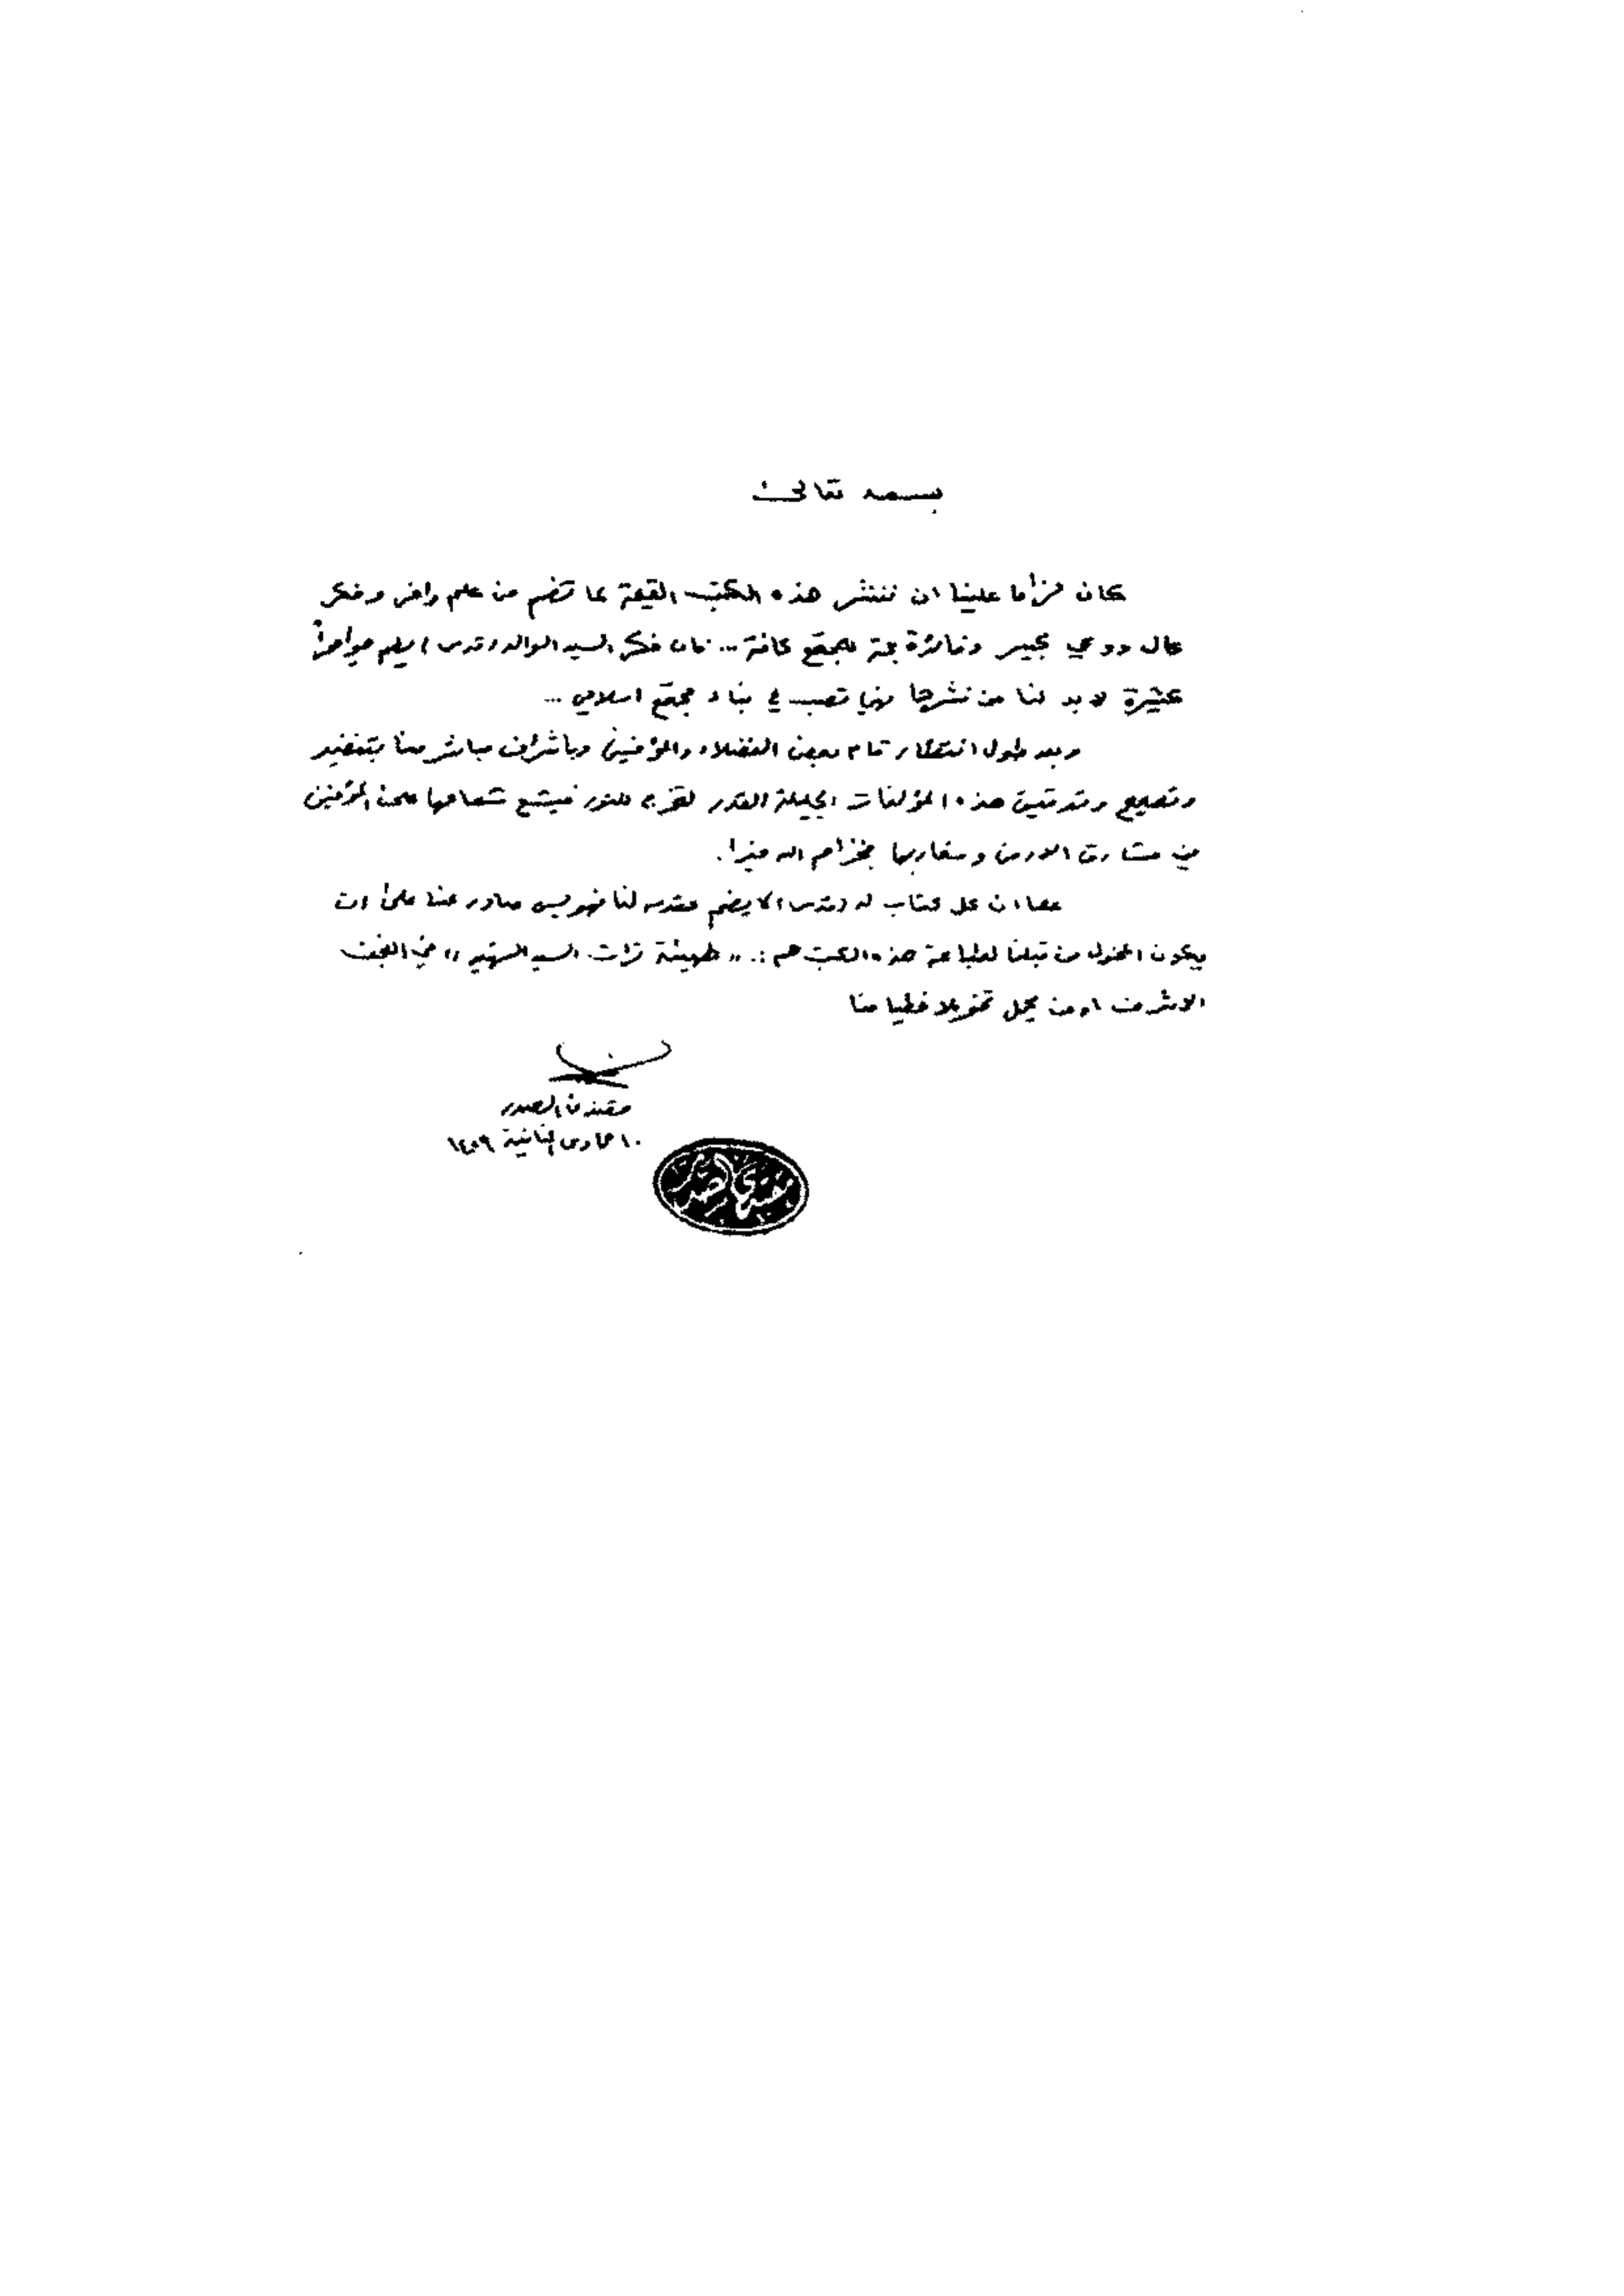 بسمه تعالى
كان لزاما علينا ان ننشر هذه الكتب القيمة لما تضم من علم وافر وفكر
عال ووعي كبير وفائدة جمة للمجتمع كافة ... فان فكر السيد الوالد (قدس)
كثيرة لا بد لنا من نشرها فهي تصب في بناء مجتمع اسلامي ...
وبعد طول انتظار قام بعض الفضلاء والمؤمنين وباشراف مباشر منا بتنضيد
وتصحيح وتدقيق هذه المؤلفات الجليلة القدر لتخرج للنور فيشع شعاعها على المؤمنين
في مشارق الارض ومغاربها فجزاهم الله خيرا.
كما ان كل كتاب له (قدس) لا يضم مقدمه لنا فهو ليس صادر عنا على ان
يكون المخول من قبلنا لطباعة هذه الكتب هم :. ,, هيئة تراث السيد الشهيد ,, في النجف
الاشرف او من يحمل تخويلا خطيا منا
مقتدى الصدر
١٠ جمادى الثانية ١٤٢٩